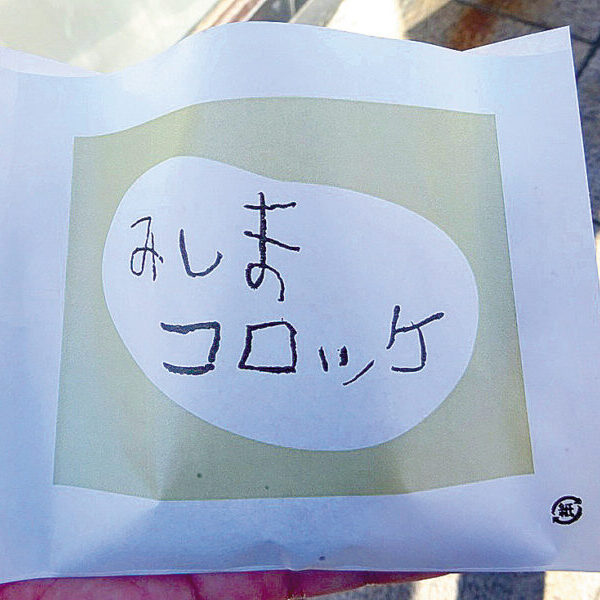 みしま
コロッケ
紙